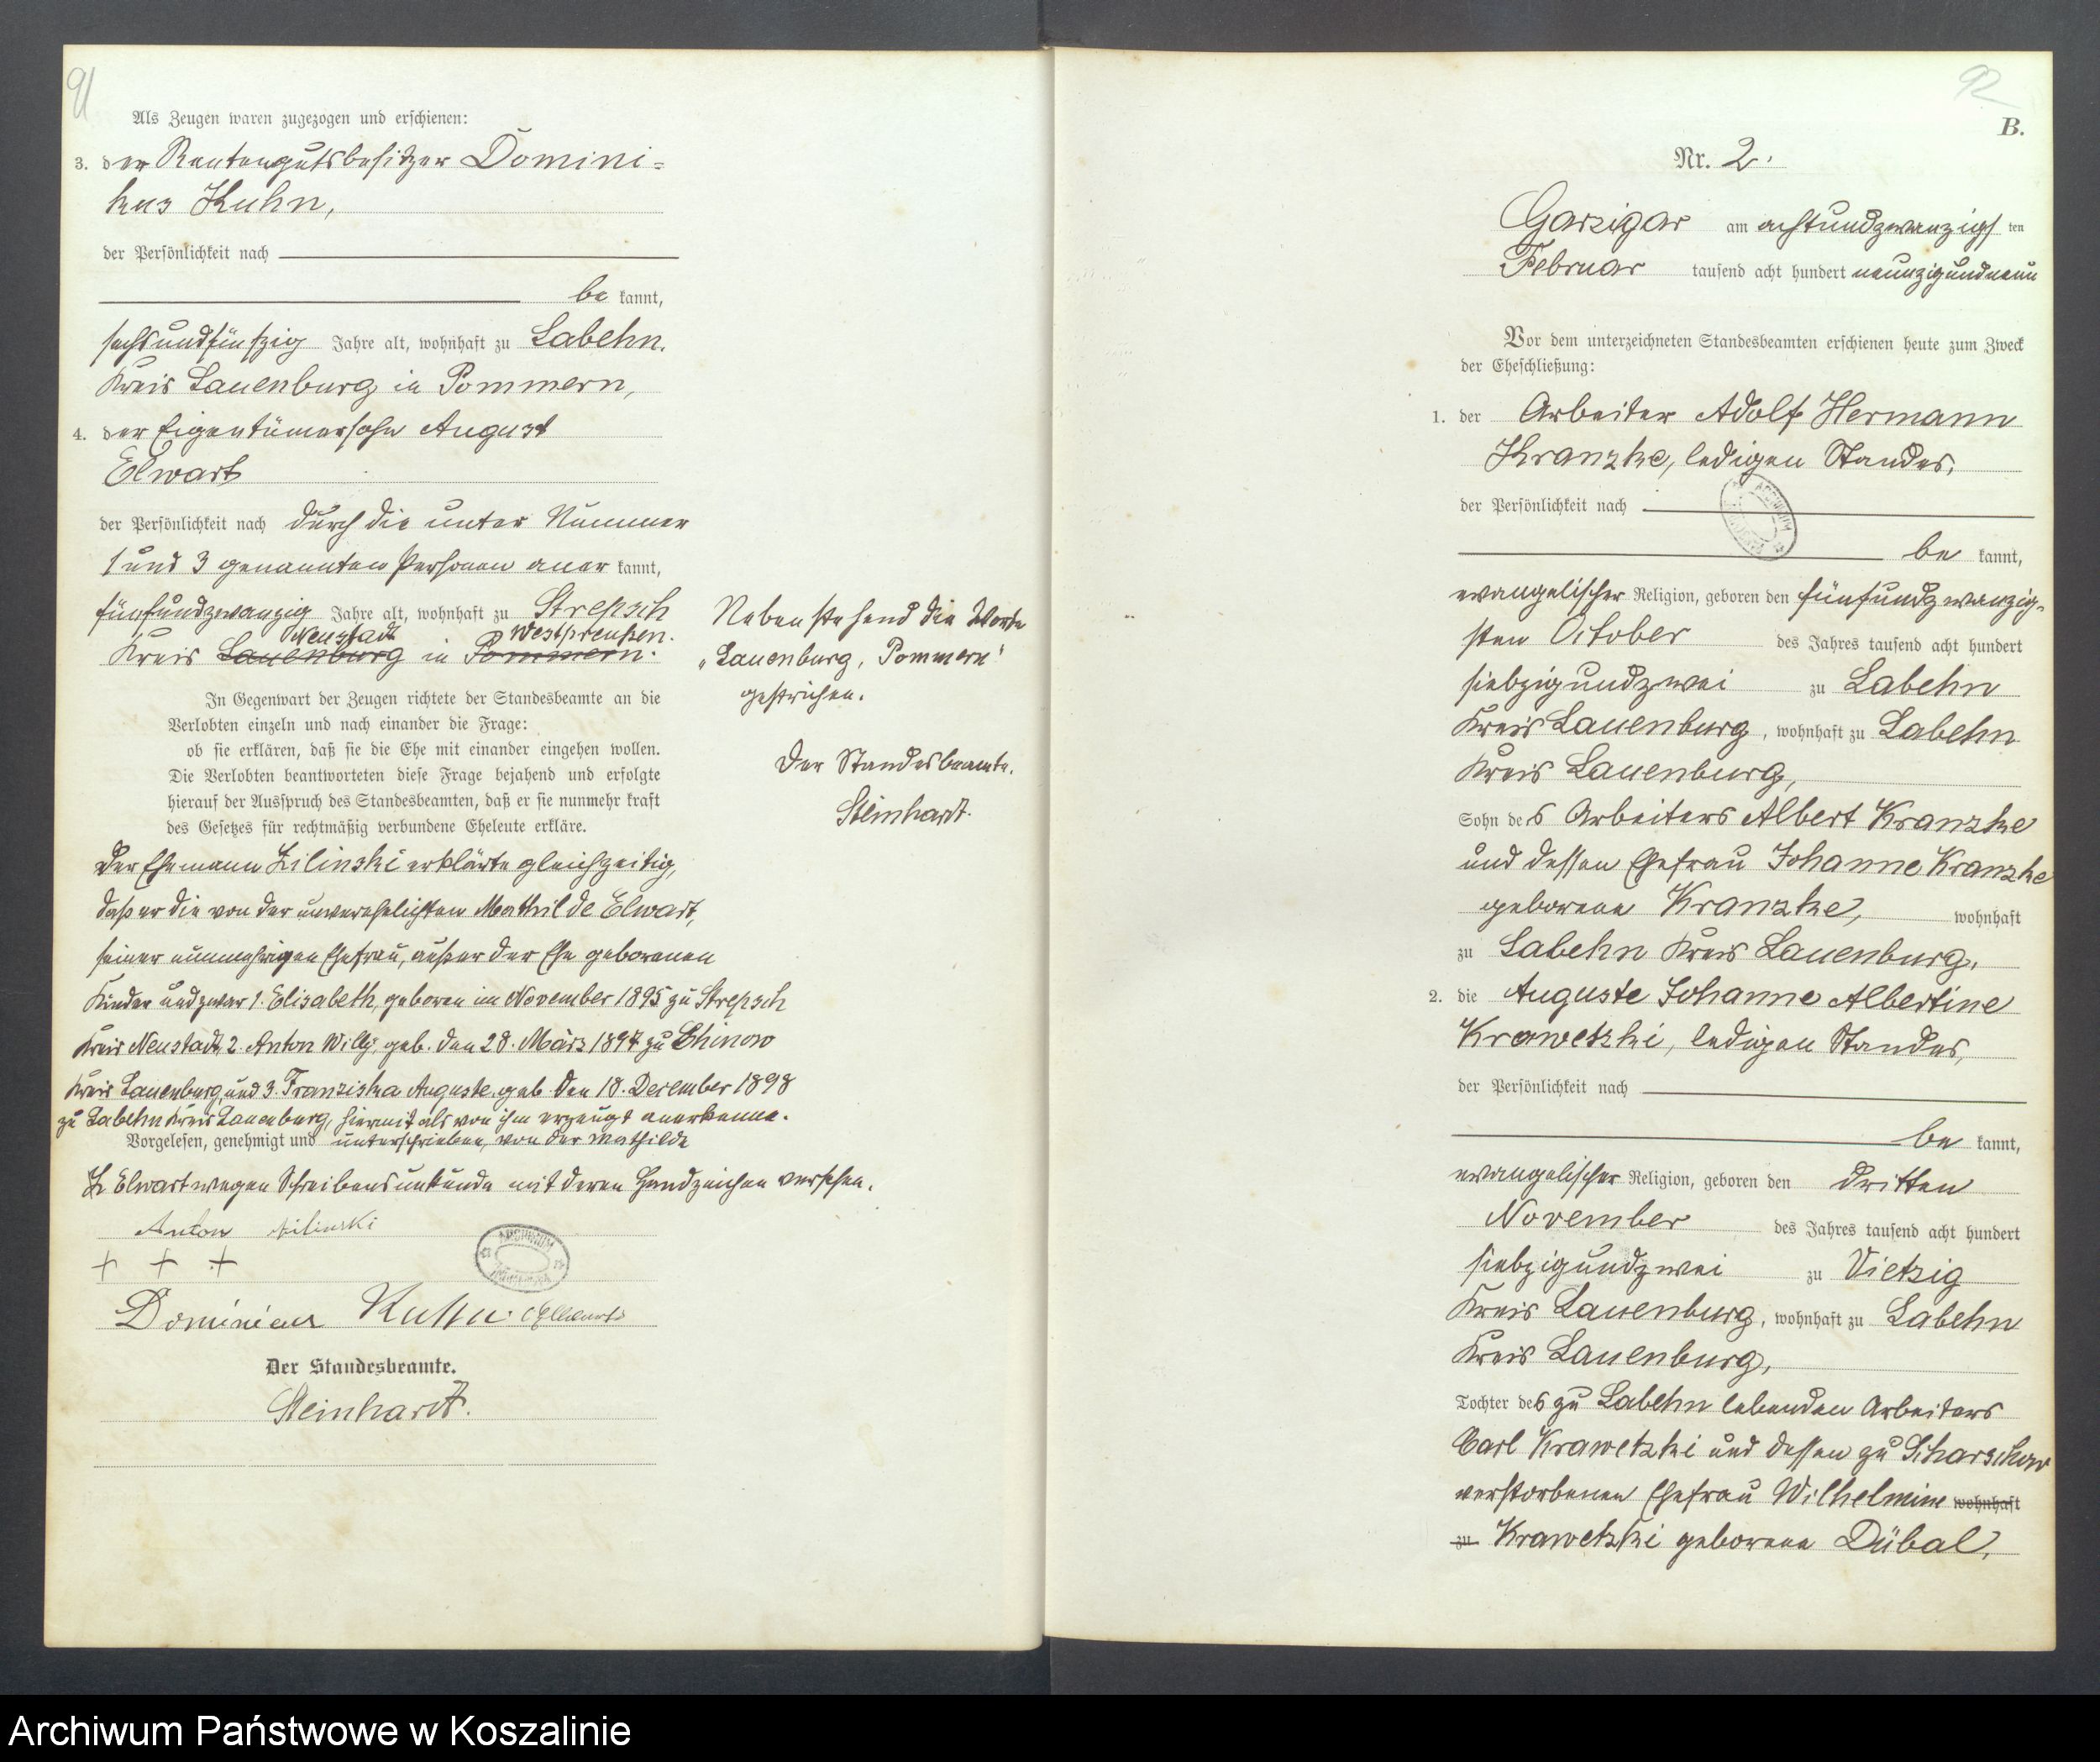 91
Als Zeugen waren zugezogen und erschienen:
3. der Rentengutsbesitzer Domini=
kus Kuhn,
der Persönlichkeit nach
be kannt,
sechsundfünfzig Jahre alt, wohnhaft zu Labehn,
Kreis Lauenburg in Pommern,
4. der Eigentümersohn August
Elwart
der Persönlichkeit nach durch die unter Nummer
1 und 3 genannten Personen aner kannt,
fünfundzwanzig Jahre alt, wohnhaft zu Strepsch
Neustadt Westpreußen.
Kreis Lauenburg in Pommern.
In Gegenwart der Zeugen richtete der Standesbeamte an die
Verlobten einzeln und nach einander die Frage:
ob sie erklären, daß sie die Ehe mit einander eingehen wollen.
Die Verlobten beantworteten diese Frage bejahend und erfolgte
hierauf der Ausspruch des Standesbeamten, daß er sie nunmehr kraft
des Gesetzes für rechtmäßig verbundene Eheleute erkläre.
Der Ehemann Zilinski erklärte gleichzeitig,
daß er die von der unverehelichten Mathilde Elwart,
seiner nunmehrigen Ehefrau, außer der Ehe geborenen
Kinder und zwar 1. Elisabeth, geboren im November 1895 zu Strepsch
Kreis Neustadt, 2. Anton Willy, geb. den 28. März 1897 zu Chinow
Kreis Lauenburg, und 3. Franziska Auguste, geb. den 18. December 1898
zu Labehn Kreis Lauenburg, hiermit als von ihm erzeugt anerkenne.
Vorgelesen, genehmigt und unterschrieben, von der Mathilde
Z Elwart wegen Schreibensunkunde mit deren Handzeichen versehen.
Anton Zilinski
+ + +
Dominicus Kuhn. Elwart
Der Standesbeamte.
Steinhardt.
Nebenstehend die Worte
„Lauenburg, Pommern"
gestrichen.
Der Standesbeamte.
Steinhardt.
ARCHIWUM
92
B.
Nr. 2.
Garzigar am achtundzwanzigs ten
Februar tausend acht hundert neunzigundneun
Vor dem unterzeichneten Standesbeamten erschienen heute zum Zweck
der Eheschließung:
1. der Arbeiter Adolf Hermann
Kranzke, ledigen Standes,
der Persönlichkeit nach
ARCHIWUM
be kannt,
evangelischer Religion, geboren den fünfundzwanzig-
sten October des Jahres tausend acht hundert
siebzigundzwei zu Labehn
Kreis Lauenburg, wohnhaft zu Labehn
Kreis Lauenburg,
Sohn des Arbeiters Albert Kranzke
und dessen Ehefrau Johanne Kranzke
geborene Kranzke, wohnhaft
zu Labehn Kreis Lauenburg,
2. die Auguste Johanne Albertine
Krawetzki, ledigen Standes,
der Persönlichkeit nach
be kannt,
evangelischer Religion, geboren den dritten
November des Jahres tausend acht hundert
siebzigundzwei zu Vietzig
Kreis Lauenburg, wohnhaft zu Labehn
Kreis Lauenburg,
Tochter des zu Labehn lebenden Arbeiters
Carl Krawetzki und dessen zu Scharschow
verstorbenen Ehefrau Wilhelmine wohnhaft
zu Krawetzki geborene Dübal,
Archiwum Państwowe w Koszalinie